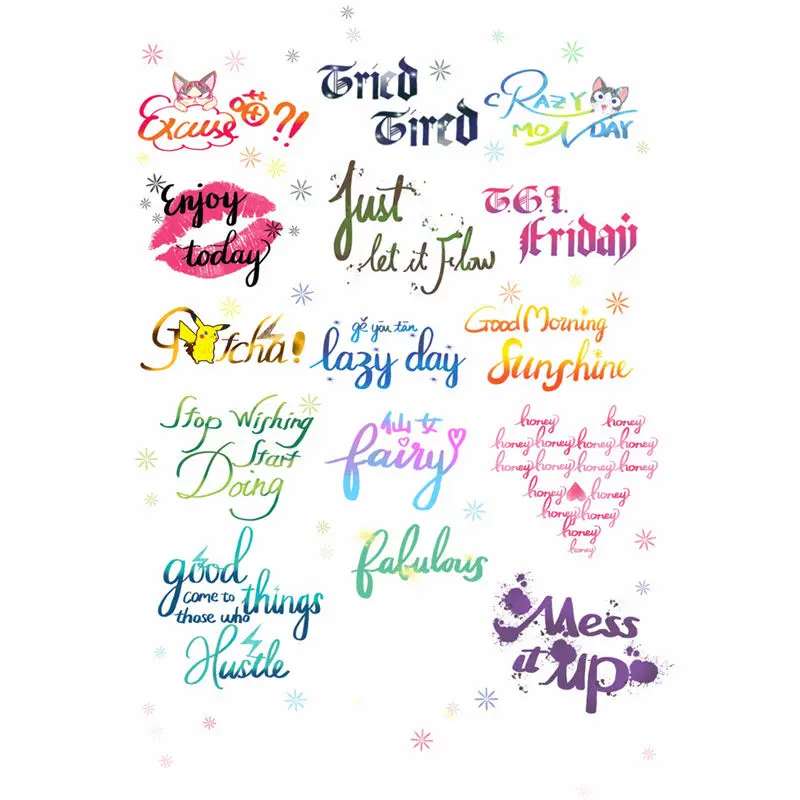 Excuse ?!
Tried
Tired
CRAZY
MONDAY
Enjoy
today
Just
let it Flow
T.G.I.
Friday
Gotcha!
gě yōu tān
lazy day
Good Morning
Sunshine
Stop Wishing
Start
Doing
仙女
fairy
honey honey
honey honey honey honey
honey honey honey honey
honey honey
honey honey
honey
honey
good
come to things
those who
Hustle
fabulous
Mess
it up